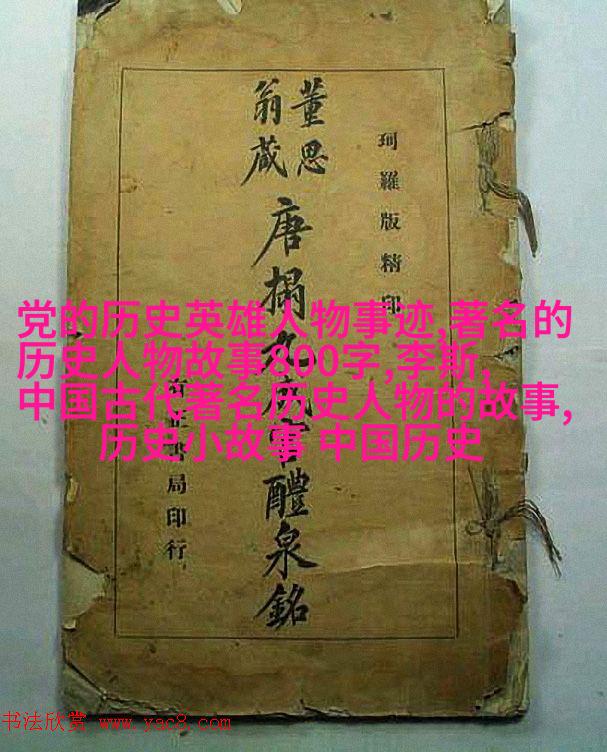 珂羅版精印
董思
翁藏
唐搨九成宮醴泉銘
有正書局印行
党的历史英雄人物事迹,著名的
历史人物故事800字,李斯,
中国古代著名历史人物的故事,
历史小故事 中国历史
书法欣赏 www.yac8.com